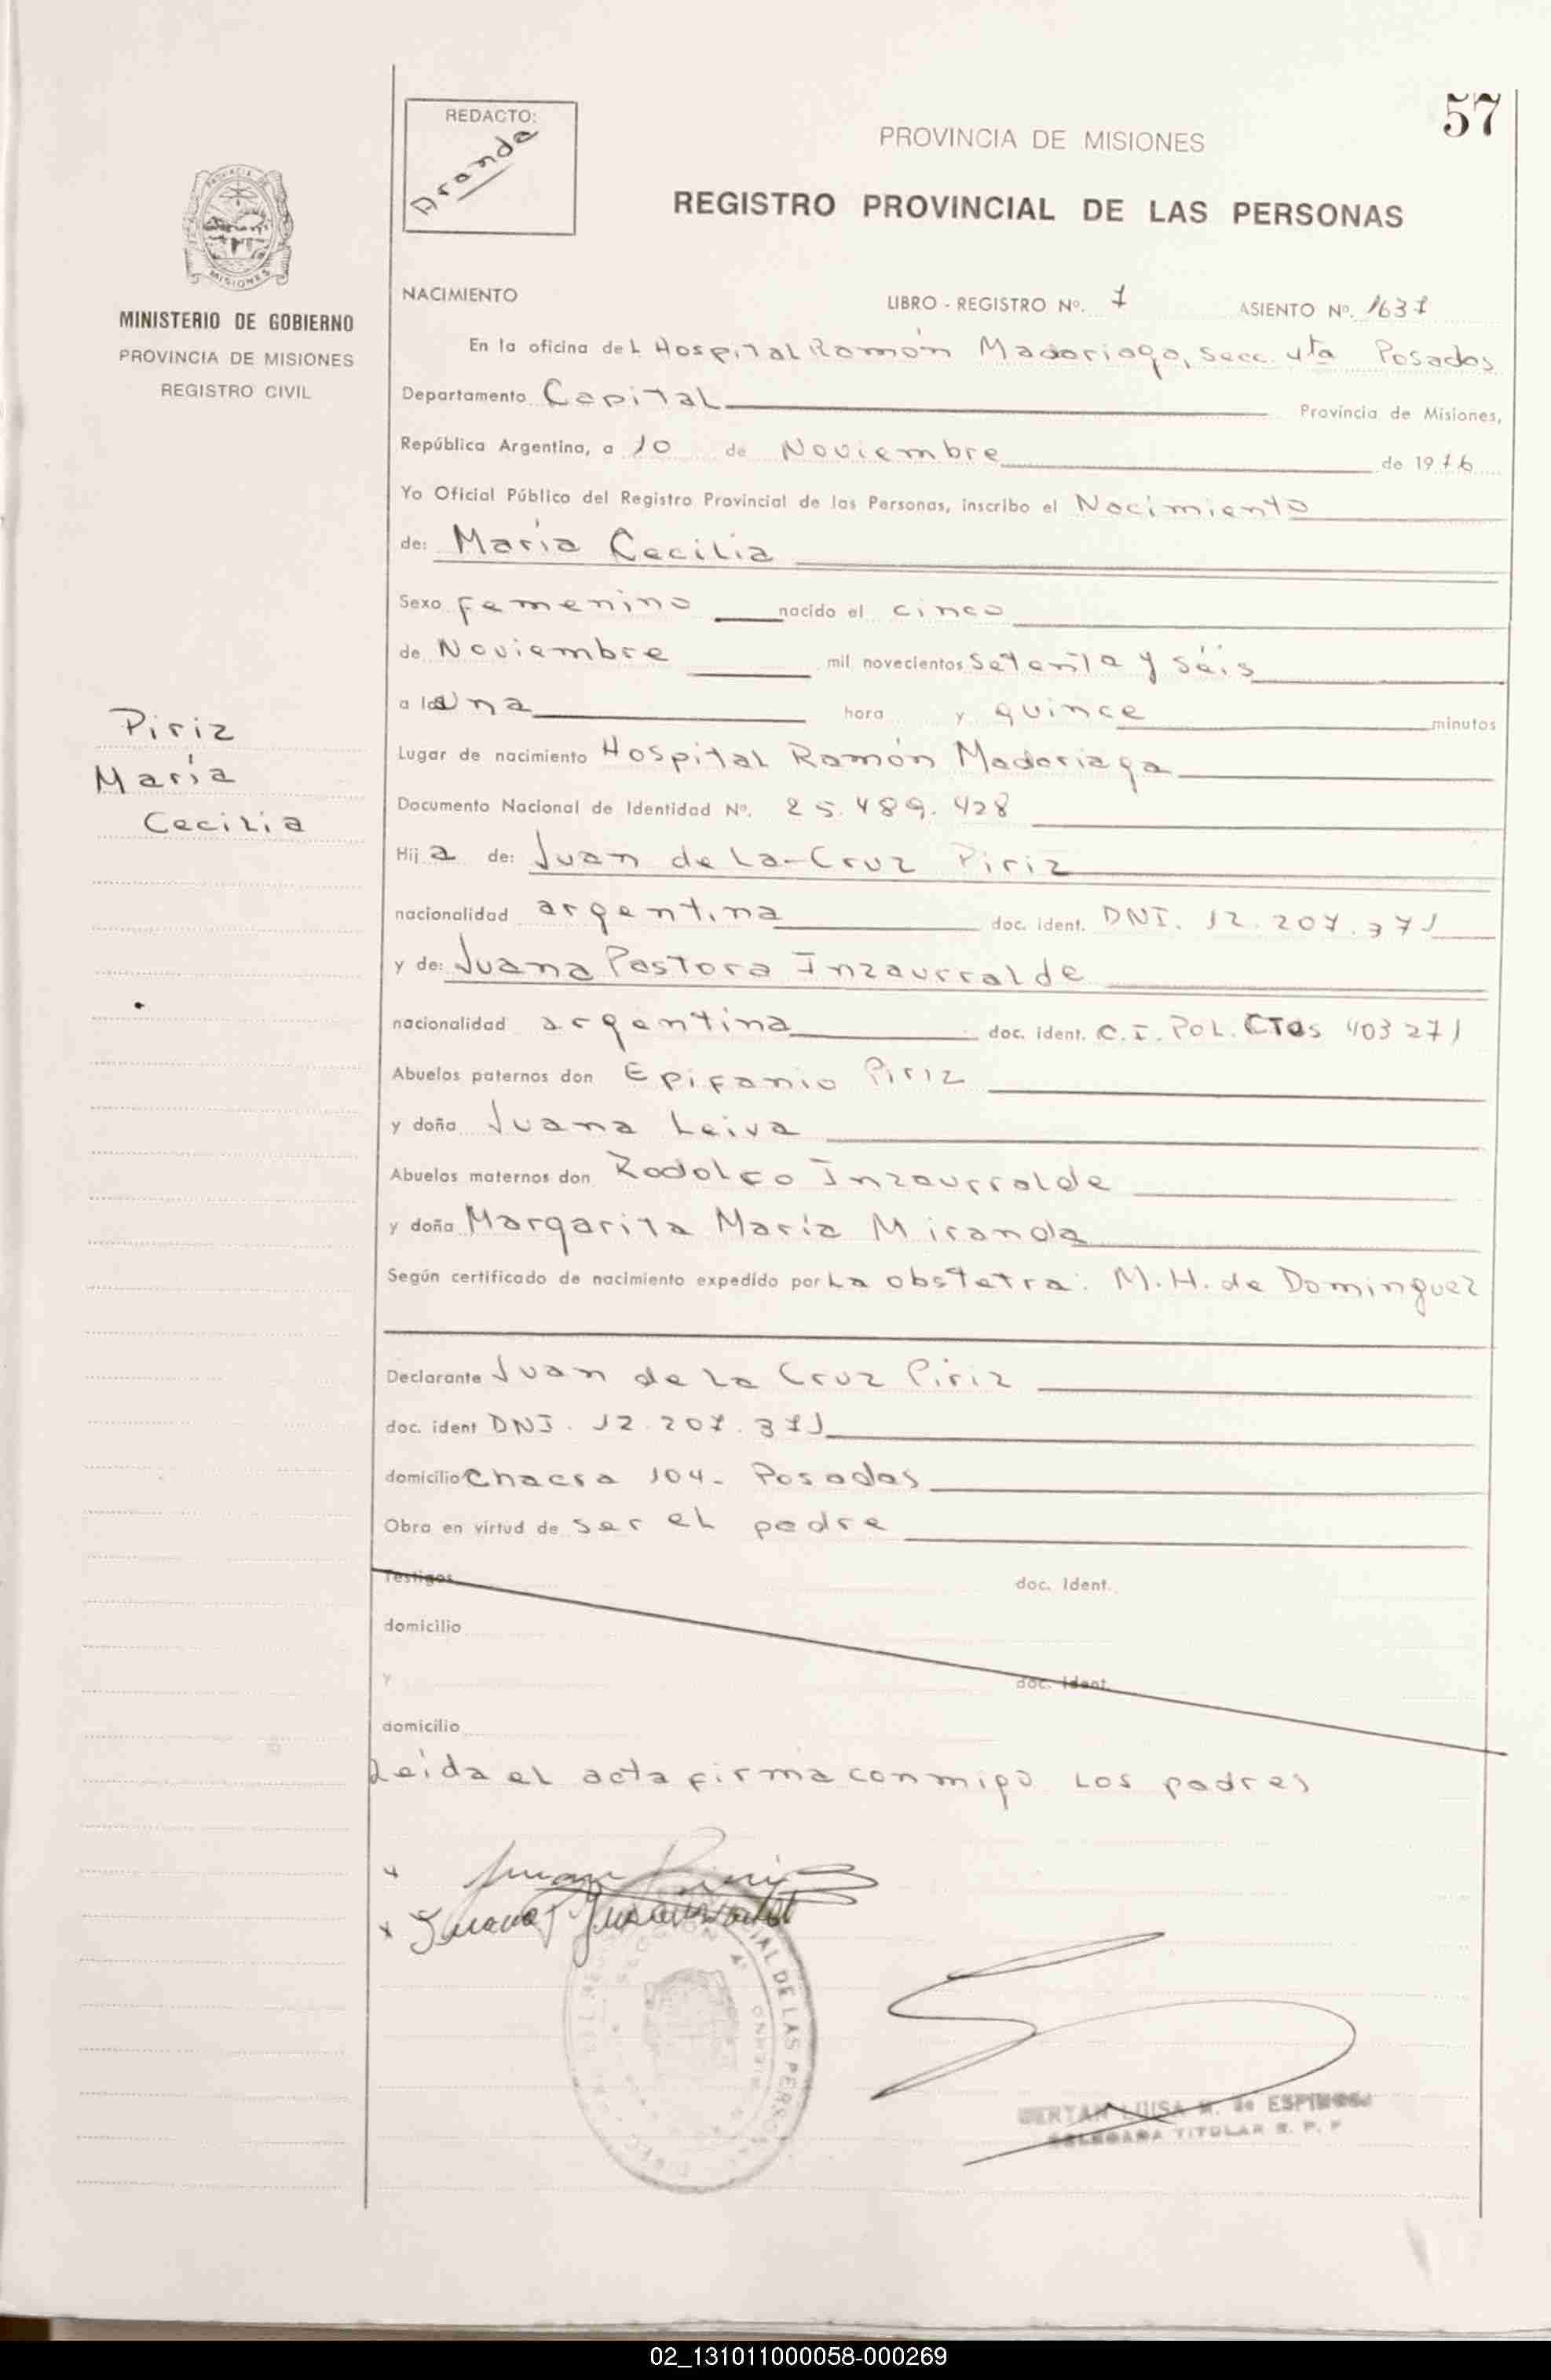 57
REDACTO:
Aranda
PROVINCIA DE MISIONES
REGISTRO PROVINCIAL DE LAS PERSONAS
MISIONES
MINISTERIO DE GOBIERNO
PROVINCIA DE MISIONES
REGISTRO CIVIL
NACIMIENTO LIBRO - REGISTRO Nº. 7 ASIENTO Nº. 1637
En la oficina del Hospital Ramón Madariaga, Secc. 4ta Posadas
Departamento Capital Provincia de Misiones,
República Argentina, a 10 de Noviembre de 1976
Yo Oficial Público del Registro Provincial de las Personas, inscribo el Nacimiento
de: María Cecilia
Sexo femenino nacido el cinco
de Noviembre mil novecientos setenta y séis
a la una hora y quince minutos
Lugar de nacimiento Hospital Ramón Madariaga
Documento Nacional de Identidad Nº. 25.489.428
Piriz
María
Cecilia
Hija de: Juan de La-Cruz Piriz
nacionalidad argentina doc. ident. DNI. 12.207.371
y de: Juana Pastora Inzaurralde
nacionalidad argentina doc. ident. C.I. POL. CTES 403271
Abuelos paternos don Epifanio Piriz
y doña Juana Leiva
Abuelos maternos don Rodolfo Inzaurralde
y doña Margarita María Miranda
Según certificado de nacimiento expedido por La obstetra: M.H. de Dominguez
Declarante Juan de La Cruz Piriz
doc. ident DNI. 12.207.371
domicilio Chacra 104- Posadas
Obra en virtud de ser el padre
Testigos doc. Ident.
domicilio
y doc. Ident.
domicilio
Leída el acta firma conmigo los padres
x Juan Piriz
x Juana Inzaurralde
SECCION 4ª
LUISA M. de ESPINOSA
DELEGADA TITULAR R. P. P
02_131011000058-000269